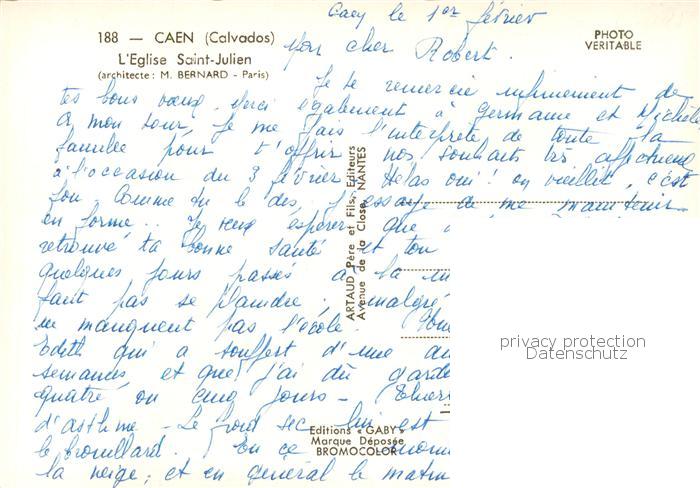 Caen le 1er février
188 — CAEN (Calvados)
L'Eglise Saint-Julien
(architecte : M. BERNARD - Paris)
PHOTO
VERITABLE
Mon cher Robert.
Je te remercie infiniment de
tes bons vœux. Merci également à Germaine et Michèle
A mon tour, je me fais l'interprète de toute la
famille pour t'offrir nos souhaits très affectueux
à l'occasion du 3 février. Hélas oui ! on vieillit, c'est
comme tu le dis, j'essaye de me maintenir
en forme.. Je veux espérer que
retrouvé ta bonne santé et ton
quelques jours passés à la
faut pas se plaindre ; malgré
ne manquent pas l'école.
Edith qui a souffert d'une
semaines et que j'ai dû garder
quatre ou cinq jours -
d'asthme - Le froid sec lui est
le brouillard. En ce
la neige ; et en général le matin
ARTAUD Père et Fils, Editeurs
Avenue de la Close, NANTES
Editions « GABY »
Marque Déposée
BROMOCOLOR
privacy protection
Datenschutz